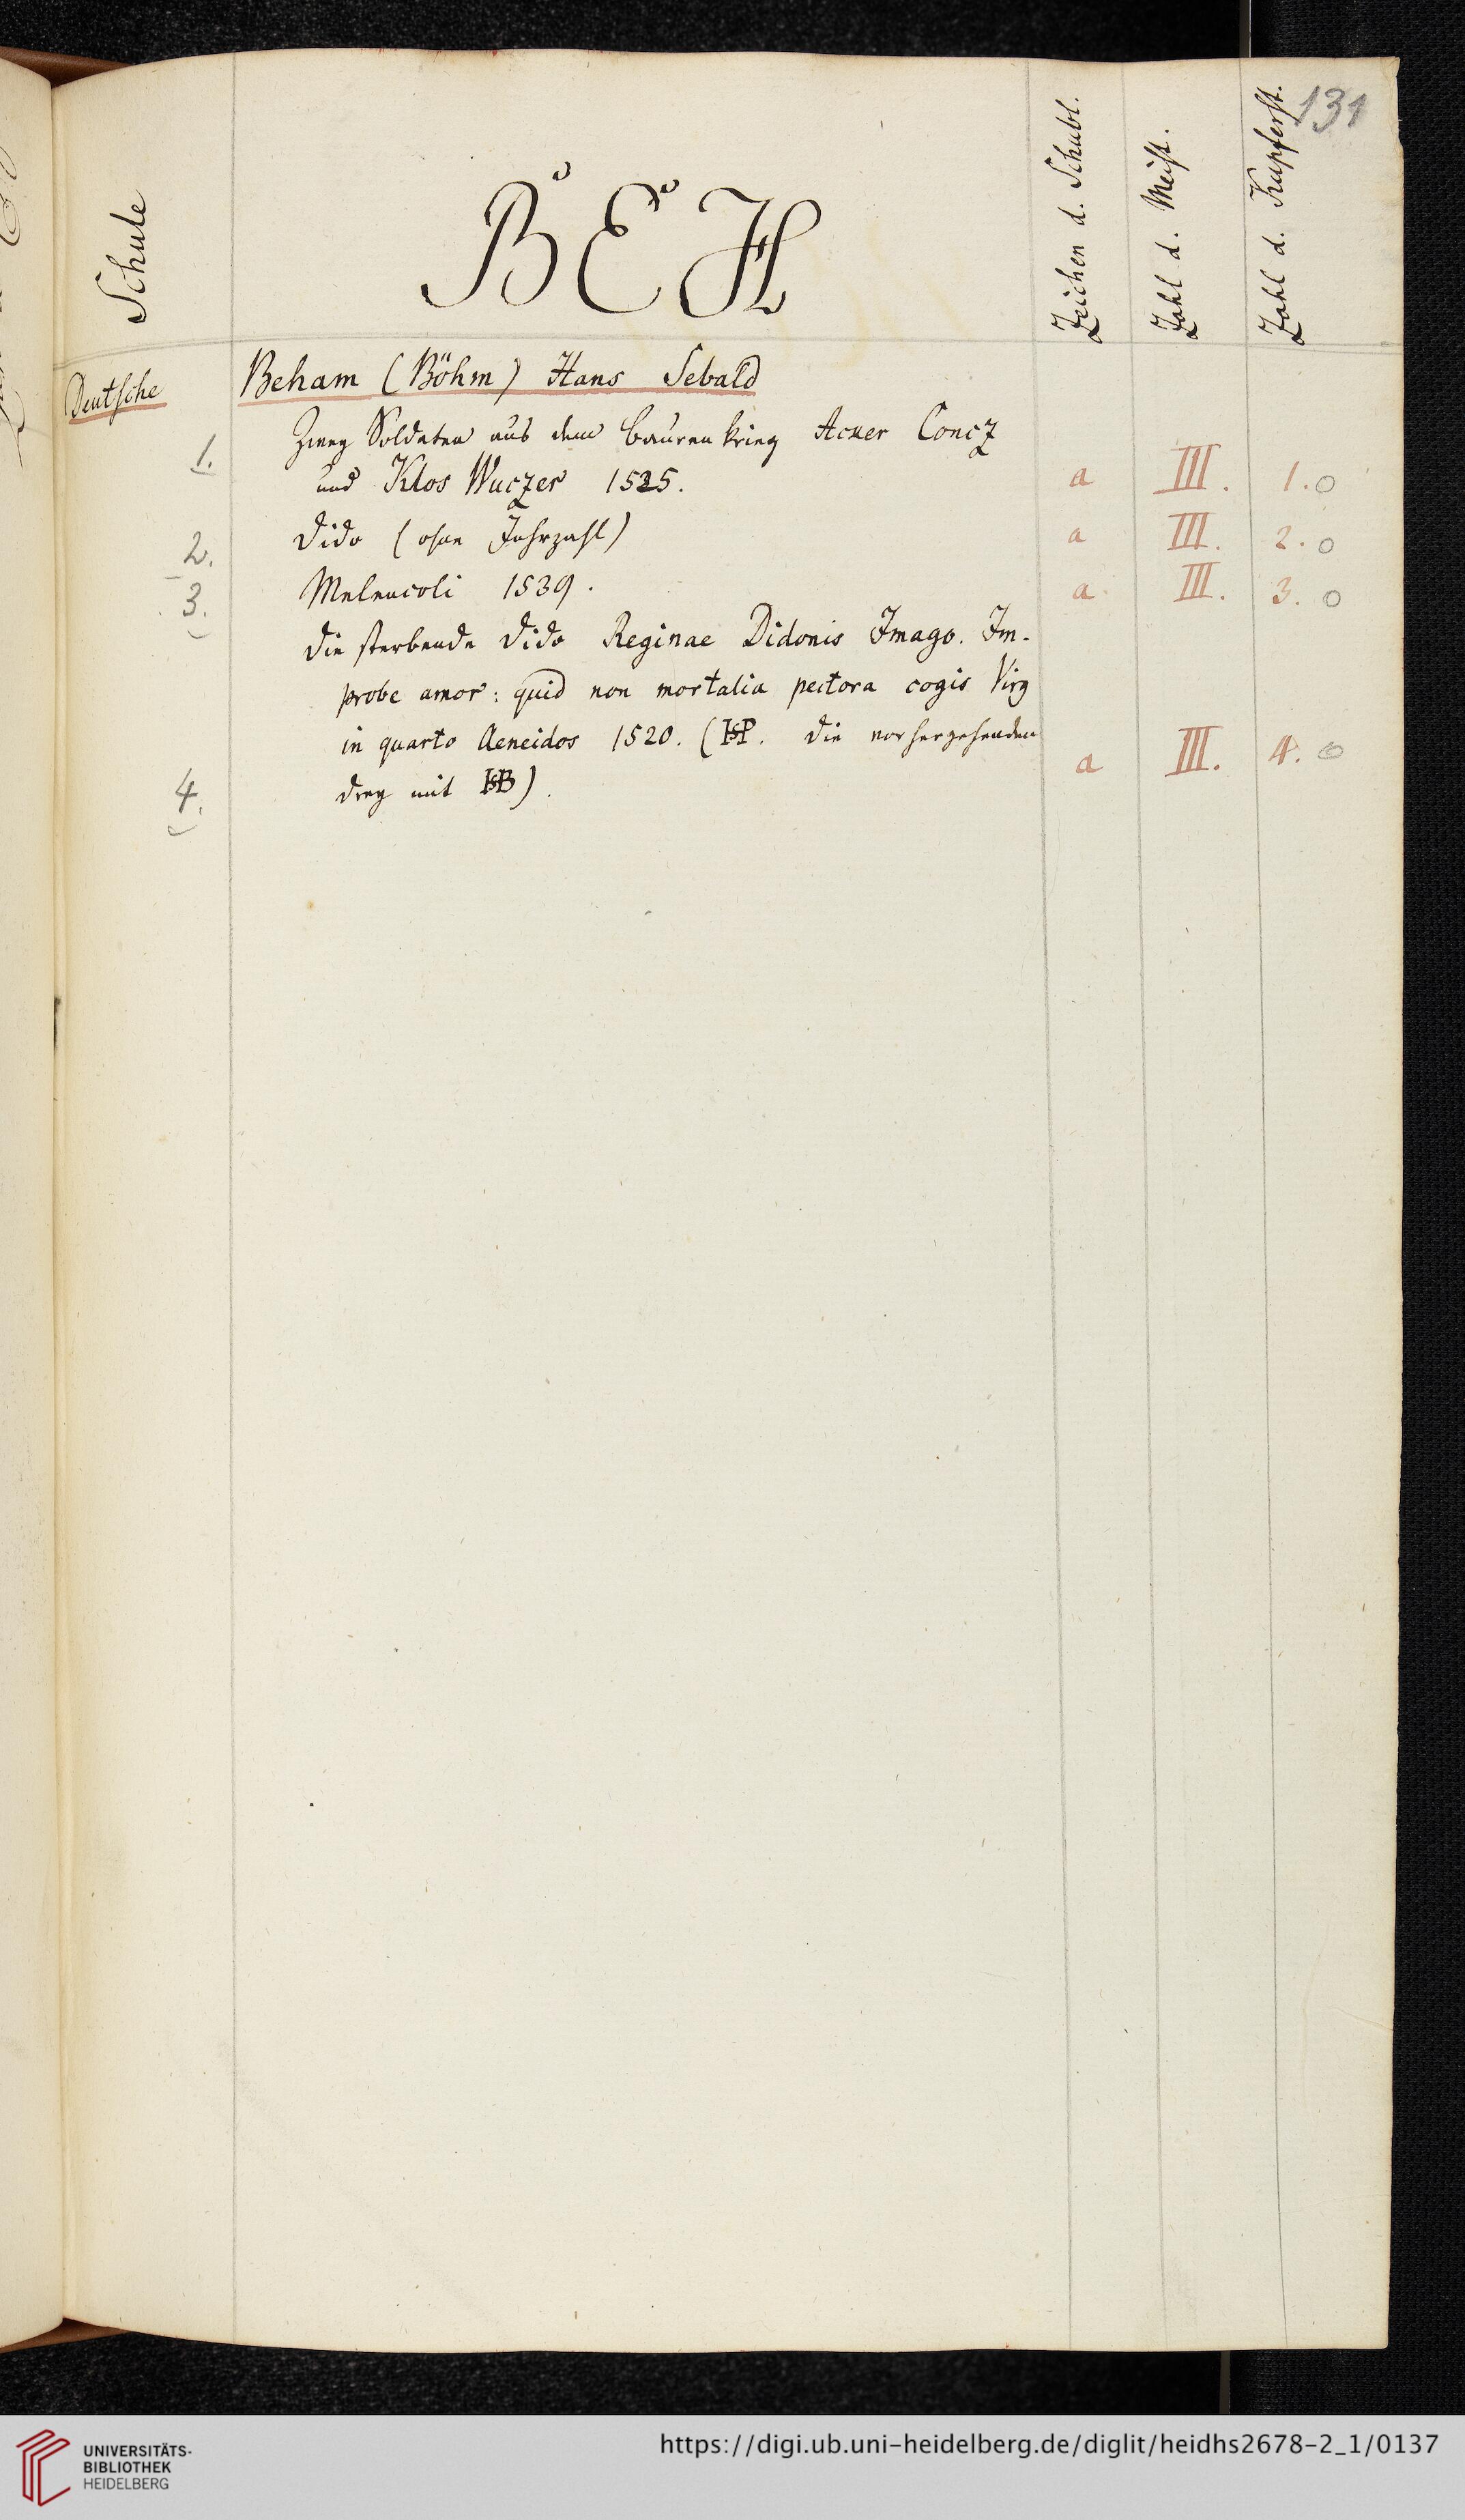 131
Schule
BEH
Zeichen d. Schubl.
Zahl d. Meist.
Zahl d. Kupferst.
Deutsche
Beham (Böhm) Hans Sebald
Zwey Soldaten aus dem Baurenkrieg Acker Concz
1. und Klos Wuczer 1525. a III. 1. o
2. Dido (ohne Jahrzahl) a III. 2. o
3. Melancoli 1539. a III. 3. o
Die sterbende Dido Reginae Didonis Imago. Im-
probe amor: quid non mortalia pectora cogis Virg
in quarto Aeneidos 1520. (HSP. Die vorhergehenden
4. drey mit HSB). a III. 4. o
UNIVERSITÄTS-
BIBLIOTHEK
HEIDELBERG
https://digi.ub.uni-heidelberg.de/diglit/heidhs2678-2_1/0137